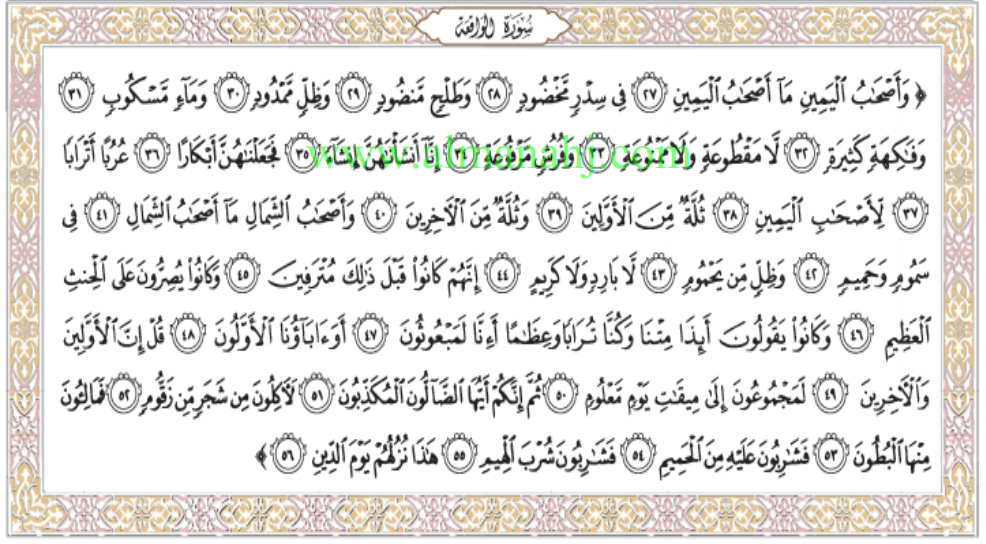 سُورَةُ الوَاقِعَة
﴿ وَأَصْحَٰبُ ٱلْيَمِينِ مَآ أَصْحَٰبُ ٱلْيَمِينِ ٢٧ فِى سِدْرٍ مَّخْضُودٍ ٢٨ وَطَلْحٍ مَّنضُودٍ ٢٩ وَظِلٍّ مَّمْدُودٍ ٣٠ وَمَآءٍ مَّسْكُوبٍ ٣١
وَفَٰكِهَةٍ كَثِيرَةٍ ٣٢ لَّا مَقْطُوعَةٍ وَلَا مَمْنُوعَةٍ ٣٣ وَفُرُشٍ مَّرْفُوعَةٍ ٣٤ إِنَّآ أَنشَأْنَٰهُنَّ إِنشَآءً ٣٥ فَجَعَلْنَٰهُنَّ أَبْكَارًا ٣٦ عُرُبًا أَتْرَابًا
www.almanahj.com
٣٧ لِّأَصْحَٰبِ ٱلْيَمِينِ ٣٨ ثُلَّةٌ مِّنَ ٱلْأَوَّلِينَ ٣٩ وَثُلَّةٌ مِّنَ ٱلْءَاخِرِينَ ٤٠ وَأَصْحَٰبُ ٱلشِّمَالِ مَآ أَصْحَٰبُ ٱلشِّمَالِ ٤١ فِى
سَمُومٍ وَحَمِيمٍ ٤٢ وَظِلٍّ مِّن يَحْمُومٍ ٤٣ لَّا بَارِدٍ وَلَا كَرِيمٍ ٤٤ إِنَّهُمْ كَانُوا۟ قَبْلَ ذَٰلِكَ مُتْرَفِينَ ٤٥ وَكَانُوا۟ يُصِرُّونَ عَلَى ٱلْحِنثِ
ٱلْعَظِيمِ ٤٦ وَكَانُوا۟ يَقُولُونَ أَئِذَا مِتْنَا وَكُنَّا تُرَابًا وَعِظَٰمًا أَءِنَّا لَمَبْعُوثُونَ ٤٧ أَوَءَابَآؤُنَا ٱلْأَوَّلُونَ ٤٨ قُلْ إِنَّ ٱلْأَوَّلِينَ
وَٱلْءَاخِرِينَ ٤٩ لَمَجْمُوعُونَ إِلَىٰ مِيقَٰتِ يَوْمٍ مَّعْلُومٍ ٥٠ ثُمَّ إِنَّكُمْ أَيُّهَا ٱلضَّآلُّونَ ٱلْمُكَذِّبُونَ ٥١ لَءَاكِلُونَ مِن شَجَرٍ مِّن زَقُّومٍ ٥٢ فَمَالِـُٔونَ
مِنْهَا ٱلْبُطُونَ ٥٣ فَشَٰرِبُونَ عَلَيْهِ مِنَ ٱلْحَمِيمِ ٥٤ فَشَٰرِبُونَ شُرْبَ ٱلْهِيمِ ٥٥ هَٰذَا نُزُلُهُمْ يَوْمَ ٱلدِّينِ ٥٦ ﴾